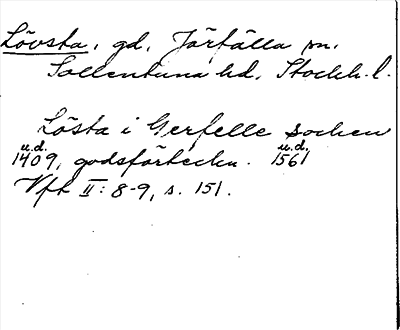 Lövsta, gd, Järfälla sn.
Sollentuna hd, Stockh. l.
Lösta i Gerfelle socken
u.d. u.d.
1409, godsförteckn. 1561
Vfh II: 8-9, s. 151.